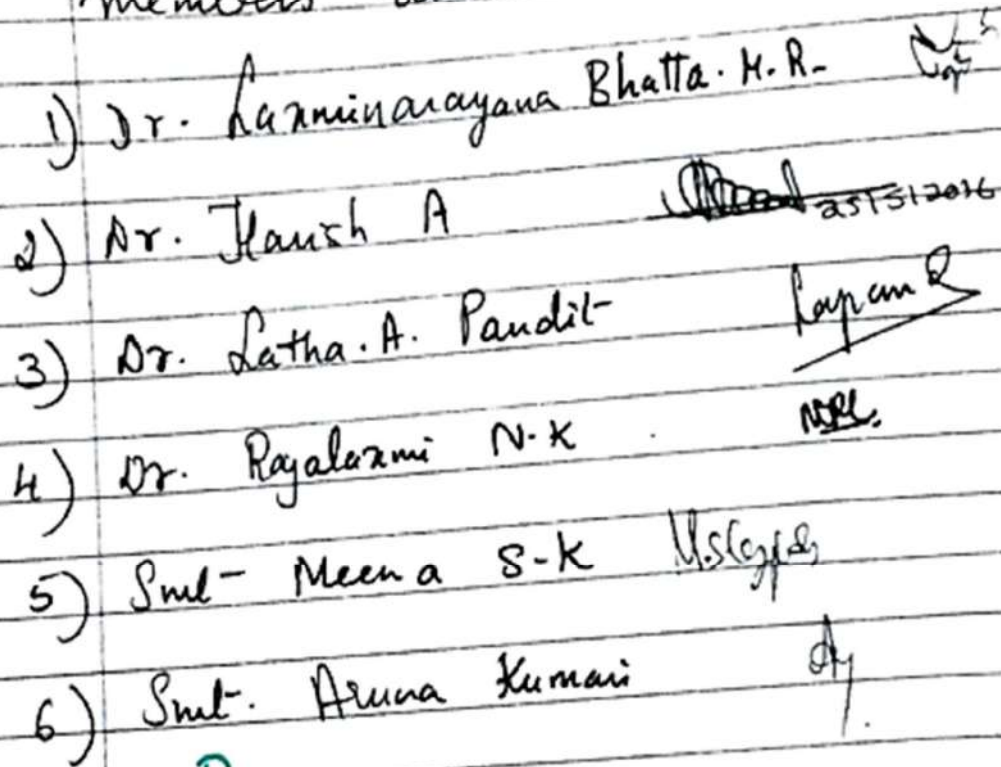 Members
1) Dr. Laxminarayana Bhatta. M. R.
2) Dr. Harish A 25/5/2016
3) Dr. Latha. A. Pandit
4) Dr. Rajalaxmi N.K
5) Smt- Meena S-K
6) Smt. Aruna Kumari